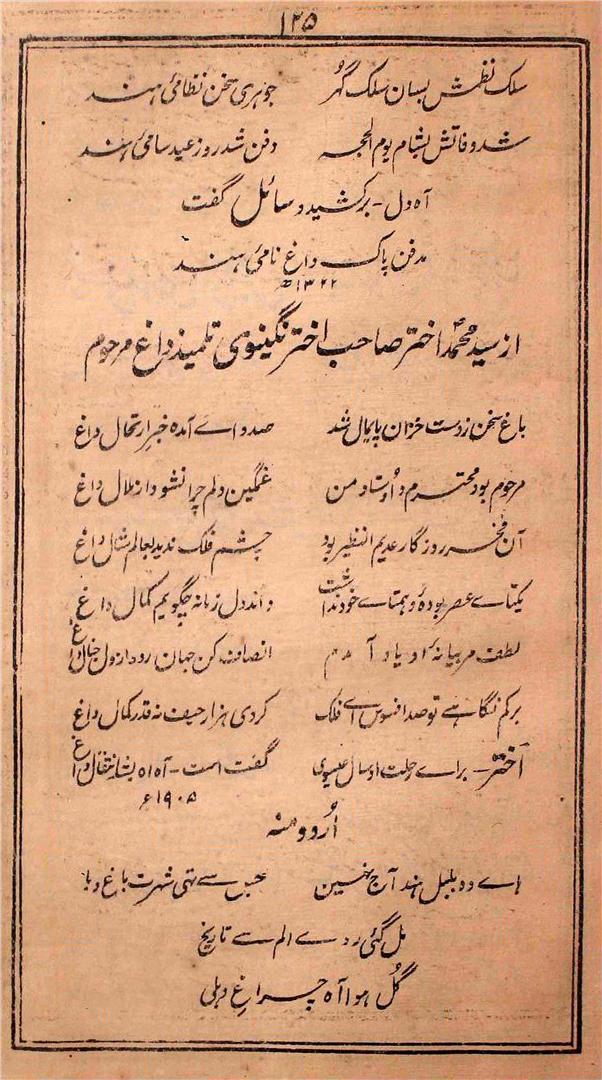 ۱۲۵
سلک نظمش بسان سلک گہر جوہری سخن نظامیٔ ہند
شد وفاتش بشام یوم الحجہ دفن شد روز عید سامیٔ ہند
آہ دل - برکشید و سائل گفت
مدفن پاک داغ نامیٔ ہند
۱۳۲۲ھ
از سید محمد اختر صاحب اختر نگینوی تلمیذ داغ مرحوم
باغ سخن ز دست خزان پایمال شد صد واے آمدہ خبر ارتحال داغ
مرحوم بود محترم و اوستاد من غمگین دلم چرا نشود از ملال داغ
آن مفخر روزگار عدیم النظیر بود چشم فلک ندید بعالم مثال داغ
یکتاے عصر بودہ و ہمتاے خود نداشت داند دل زمانہ چگویم کمال داغ
لطف مربیانہ او یاد آمدم انصاف کن جہان رود از دل خیال داغ
برکم نگاہے تو صد افسوس اے فلک کردی ہزار حیف نہ قدر کمال داغ
اختر - براے رحلت او سال عیسوی گفت است - آہ اہ بشد انتقال داغ
۱۹۰۵ء
اُردو منہ
ہاے وہ بلبل ہند آج نہین جس سے تہی شہرت باغ دہلی
مل گئی روے الم سے تاریخ
گُل ہوا آہ چراغِ دہلی